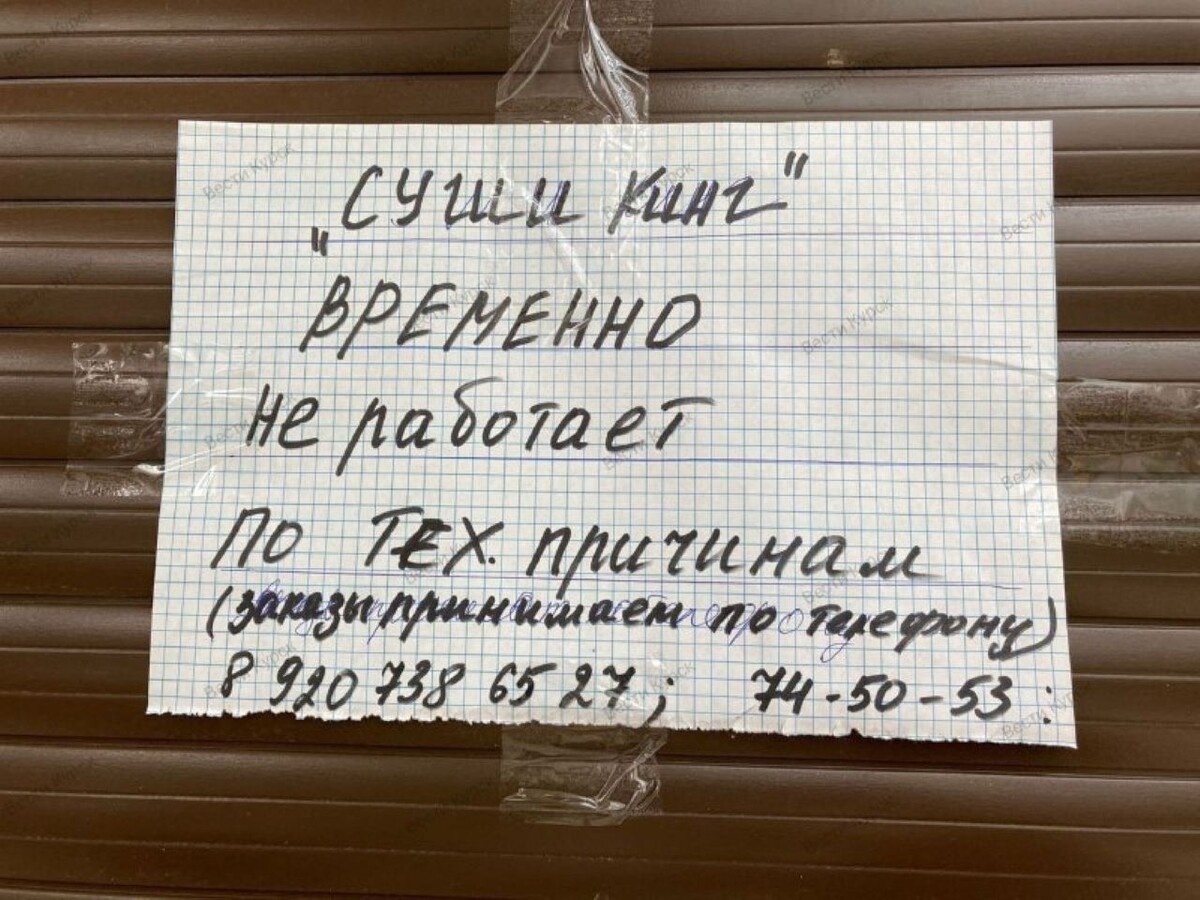 „Суши Кинг"
ВРЕМЕННО
не работает
По ТЕХ. причинам
(заказы принимаем по телефону)
8 920 738 65 27; 74-50-53:
Вести Курск